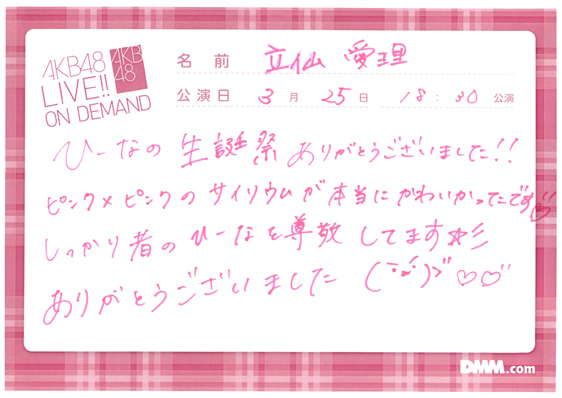 AKB48
LIVE!!
ON DEMAND
AKB
48
名前 立仙 愛理
公演日 3月 25日 18:30 公演
ひーなの 生誕祭 ありがとうございました!!
ピンク×ピンクの サイリウムが 本当に かわいかったです♡
しっかり者の ひーなを 尊敬 してます☆彡
ありがとうございました (¨̮)ゞ♡♡
DMM.com